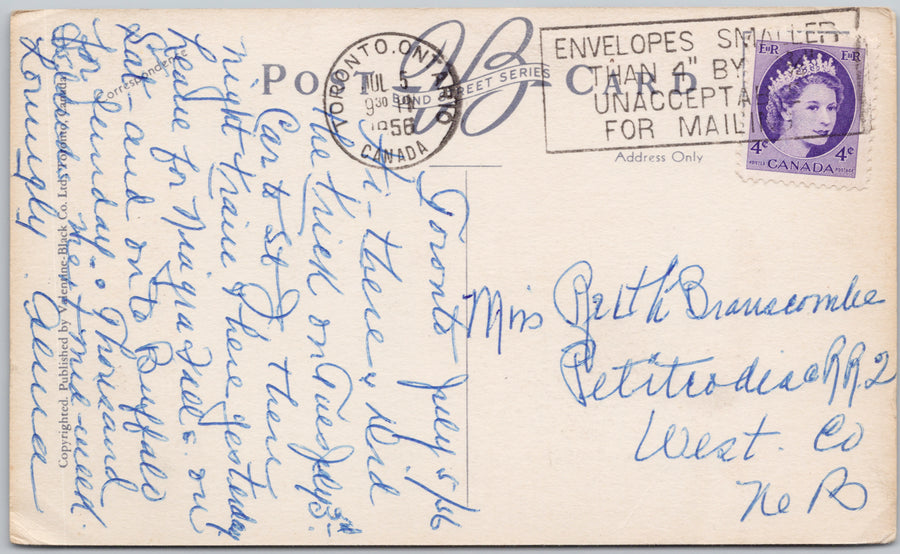 POST CARD
BB
BOND STREET SERIES
TORONTO, ONTARIO
JUL 5
9 30 PM
1956
CANADA
ENVELOPES SMALLER
THAN 4" BY
UNACCEPTA
FOR MAILI
E II R E II R
4¢ 4¢
POSTES CANADA POSTAGE
Address Only
Correspondence
Copyrighted. Published by Valentine-Black Co. Ltd. Toronto, Canada
Toronto July 5/56
Hi-there & Did
the trick on Tues July 3rd
Car to St J. then
night train & here yesterday
Leave for Niagra Falls on
Sat- and on to Buffalo
on Sunday. Thousand
Islands next mid-week.
Lovingly Alma
Miss Ruth Branscombe
Petitcodiac RR2
West. Co
N B